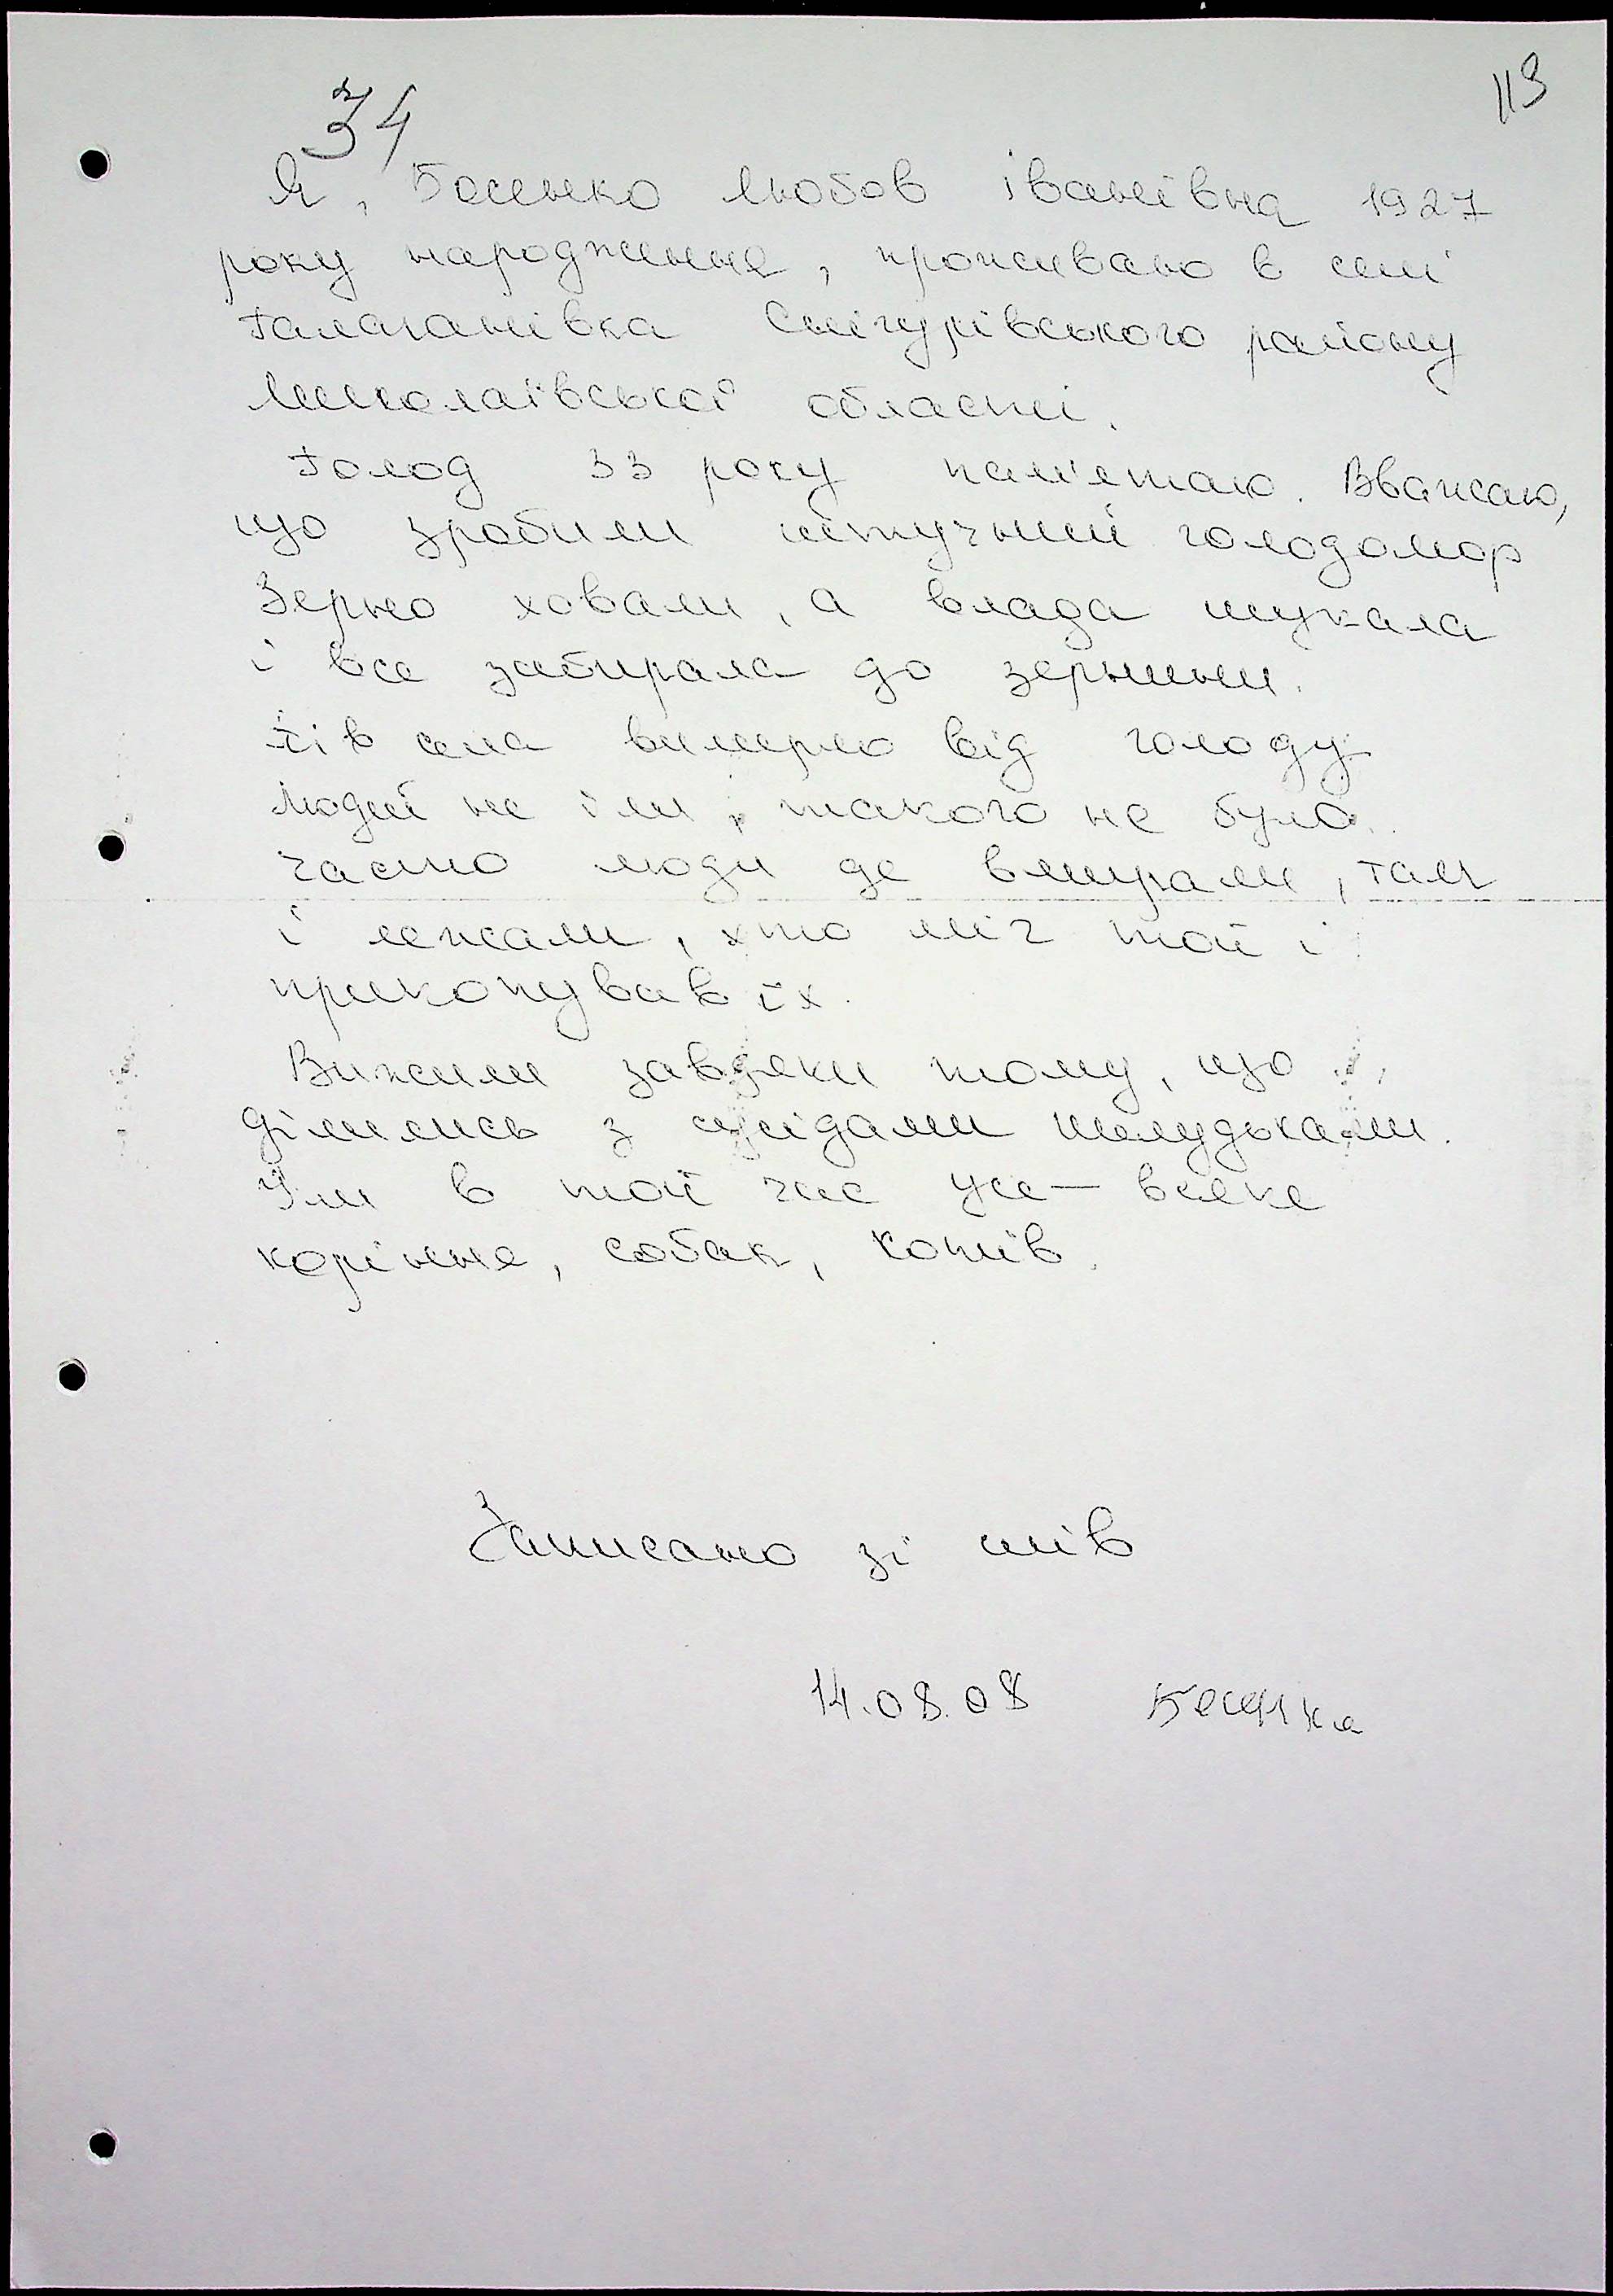 34
119
Я, Босенко Любов Іванівна 1927
року народження, проживаю в селі
Галаганівка Снігурівського району
Миколаївської області.
Голод 33 року пам'ятаю. Вважаю,
що зробили штучний голодомор
Зерно ховали, а влада шукала
і все забирала до зернини.
Пів села вимерло від голоду
Людей не їли, такого не було.
Часто люди де вмирали, там
і лежали, хто міг той і
прикопував їх.
Вижили завдяки тому, що
ділились з сусідами шкурками.
Їли в той час усе — всяке
коріння, собак, котів.
Записано зі слів
14.08.08